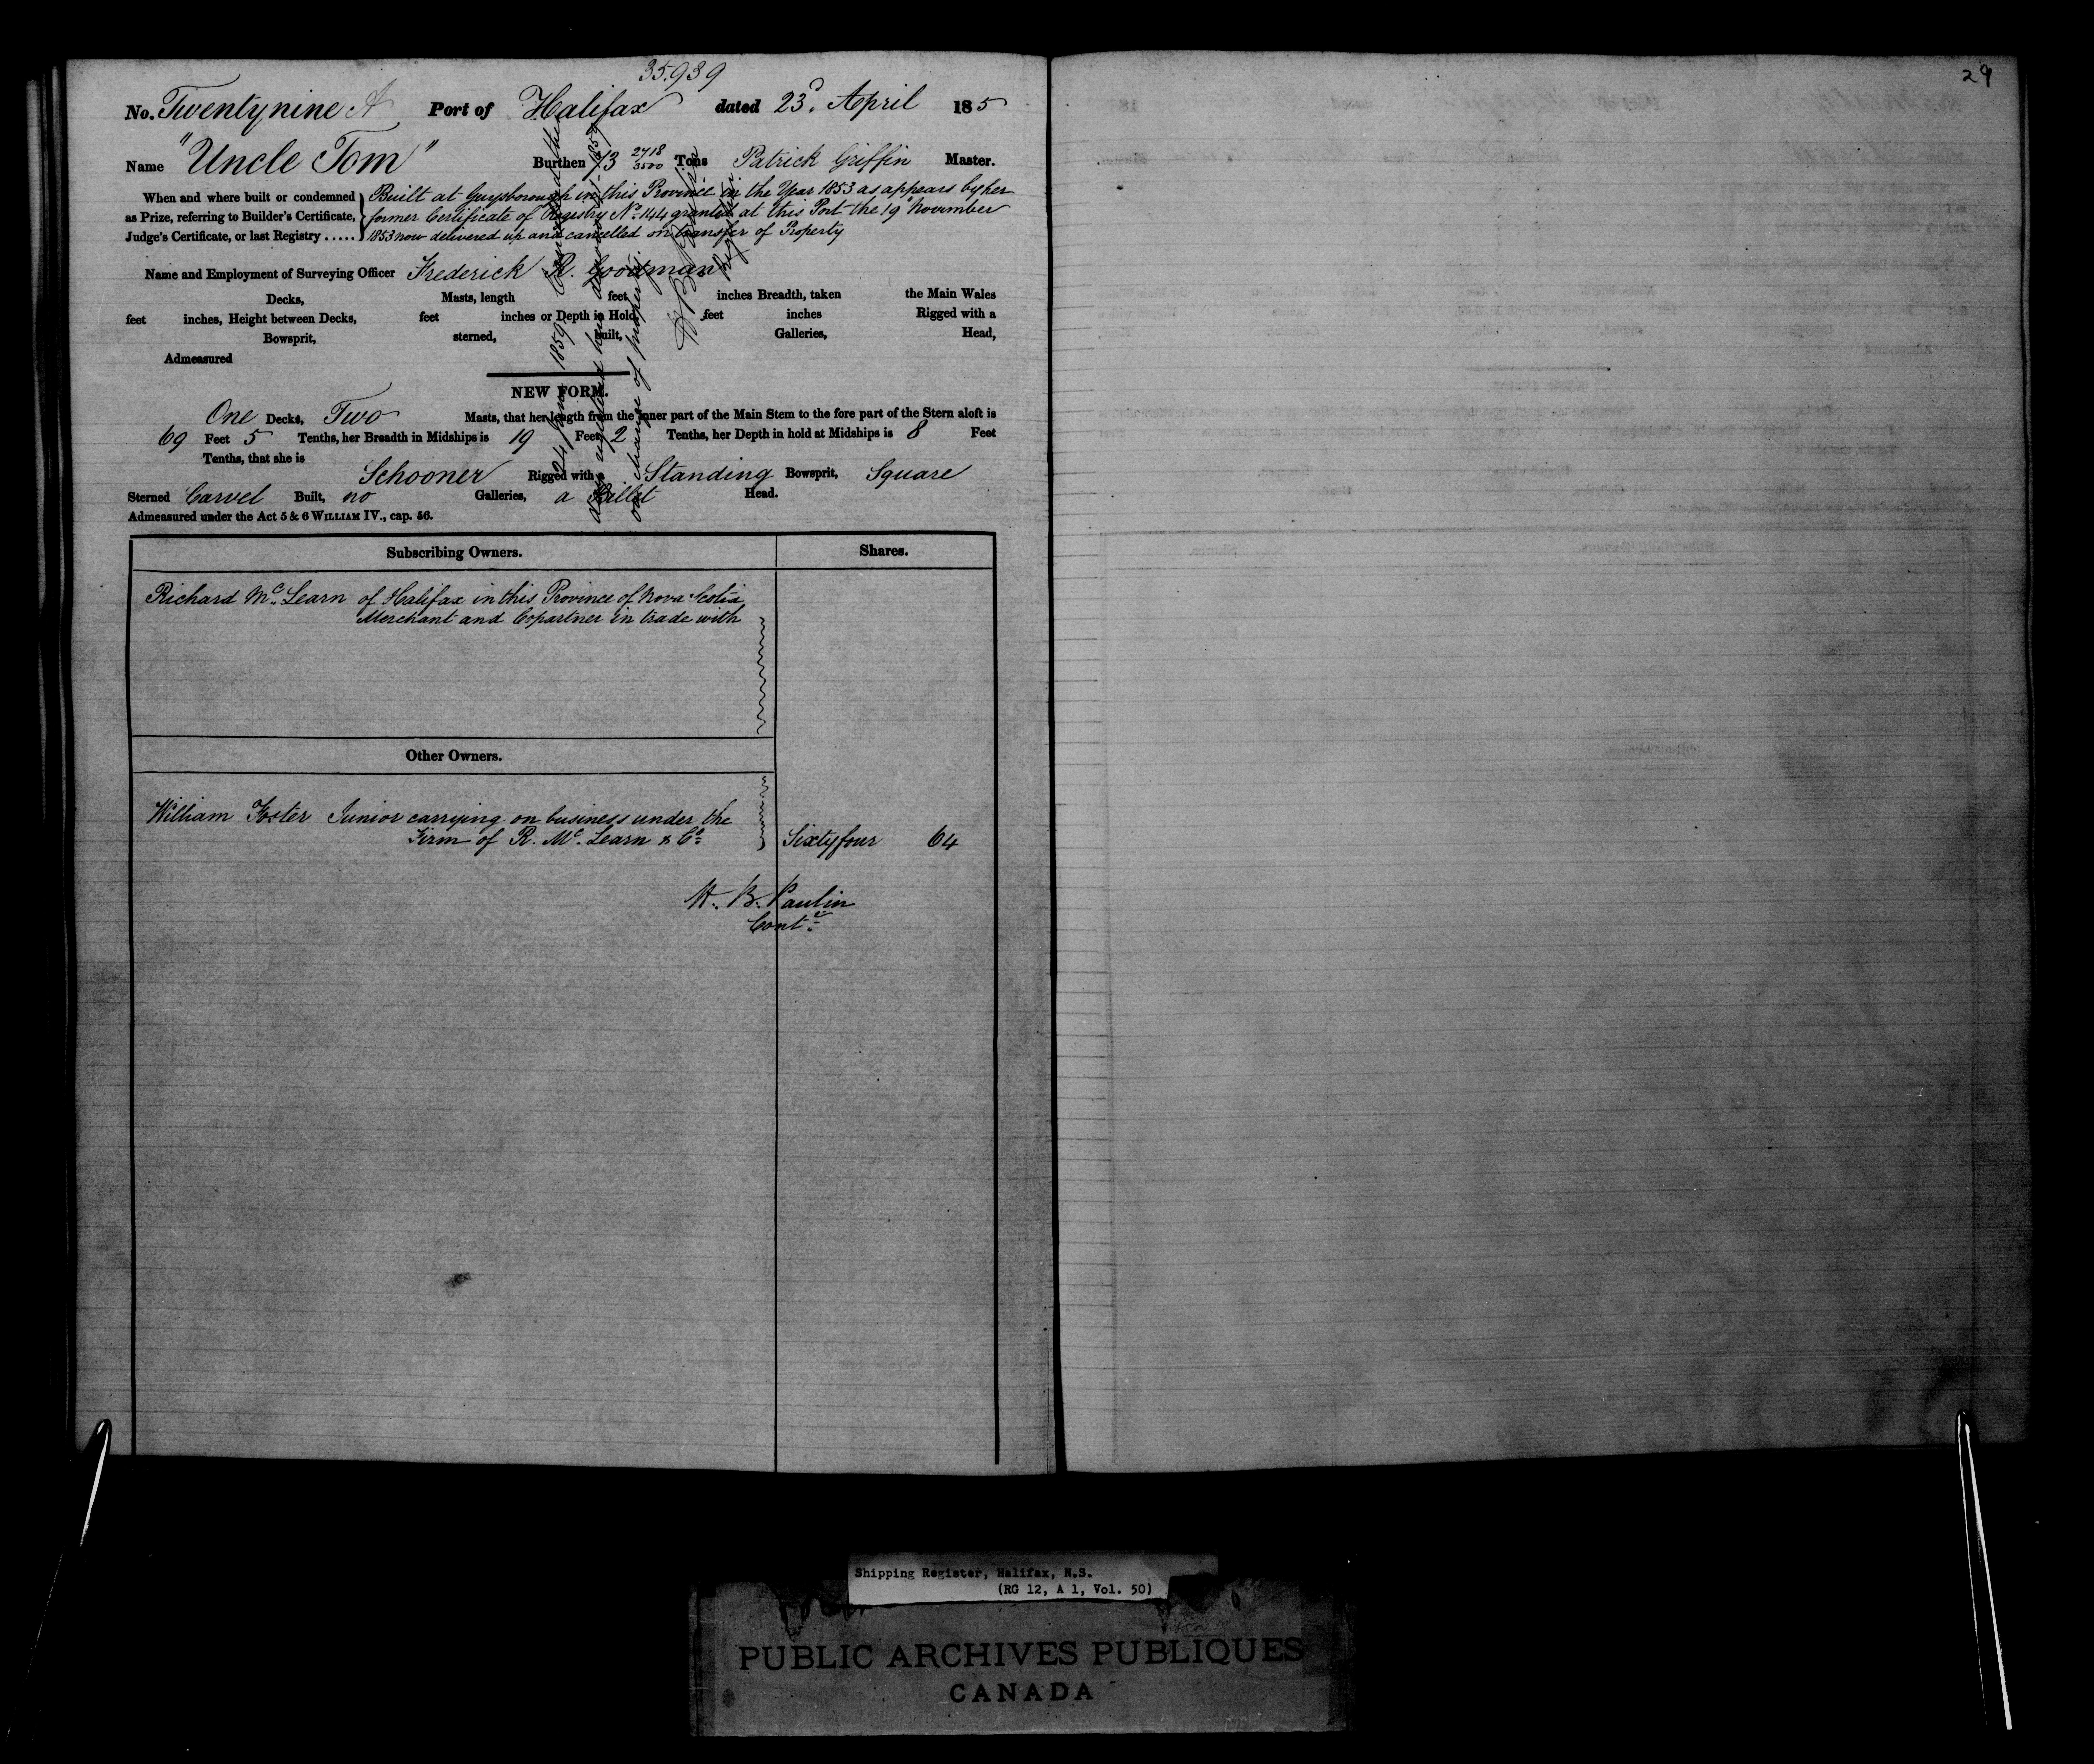 35.939
29
No. Twentynine A Port of Halifax dated 23d. April 185
Name "Uncle Tom" Burthen 73 2718/3500 Tons Patrick Griffin Master.
When and where built or condemned Built at Guysborough in this Province in the Year 1853 as appears by her
as Prize, referring to Builder's Certificate, former Certificate of Registry No. 144 granted at this Port the 19th November
Judge's Certificate, or last Registry ..... 1853 now delivered up and cancelled on transfer of Property
Name and Employment of Surveying Officer Frederick R. Goodman
Decks, Masts, length feet inches Breadth, taken the Main Wales
feet inches, Height between Decks, feet inches or Depth in Hold feet inches Rigged with a
Bowsprit, sterned, built, Galleries, Head,
Admeasured
NEW FORM.
One Decks, Two Masts, that her length from the inner part of the Main Stem to the fore part of the Stern aloft is
69 Feet 5 Tenths, her Breadth in Midships is 19 Feet 2 Tenths, her Depth in hold at Midships is 8 Feet
Tenths, that she is
Schooner Rigged with a Standing Bowsprit, Square
Sterned Carvel Built, no Galleries, a Billet Head.
Admeasured under the Act 5 & 6 WILLIAM IV., cap. 56.
1859
on change of property
Subscribing Owners. Shares.
Richard Mc. Learn of Halifax in this Province of Nova Scotia
Merchant and Copartner in trade with
Other Owners.
William Foster Junior carrying on business under the
Firm of R. Mc. Learn & Co. Sixtyfour 64
H. B. Paulin
Contr.
Shipping Register, Halifax, N.S.
(RG 12, A 1, Vol. 50)
PUBLIC ARCHIVES PUBLIQUES
CANADA